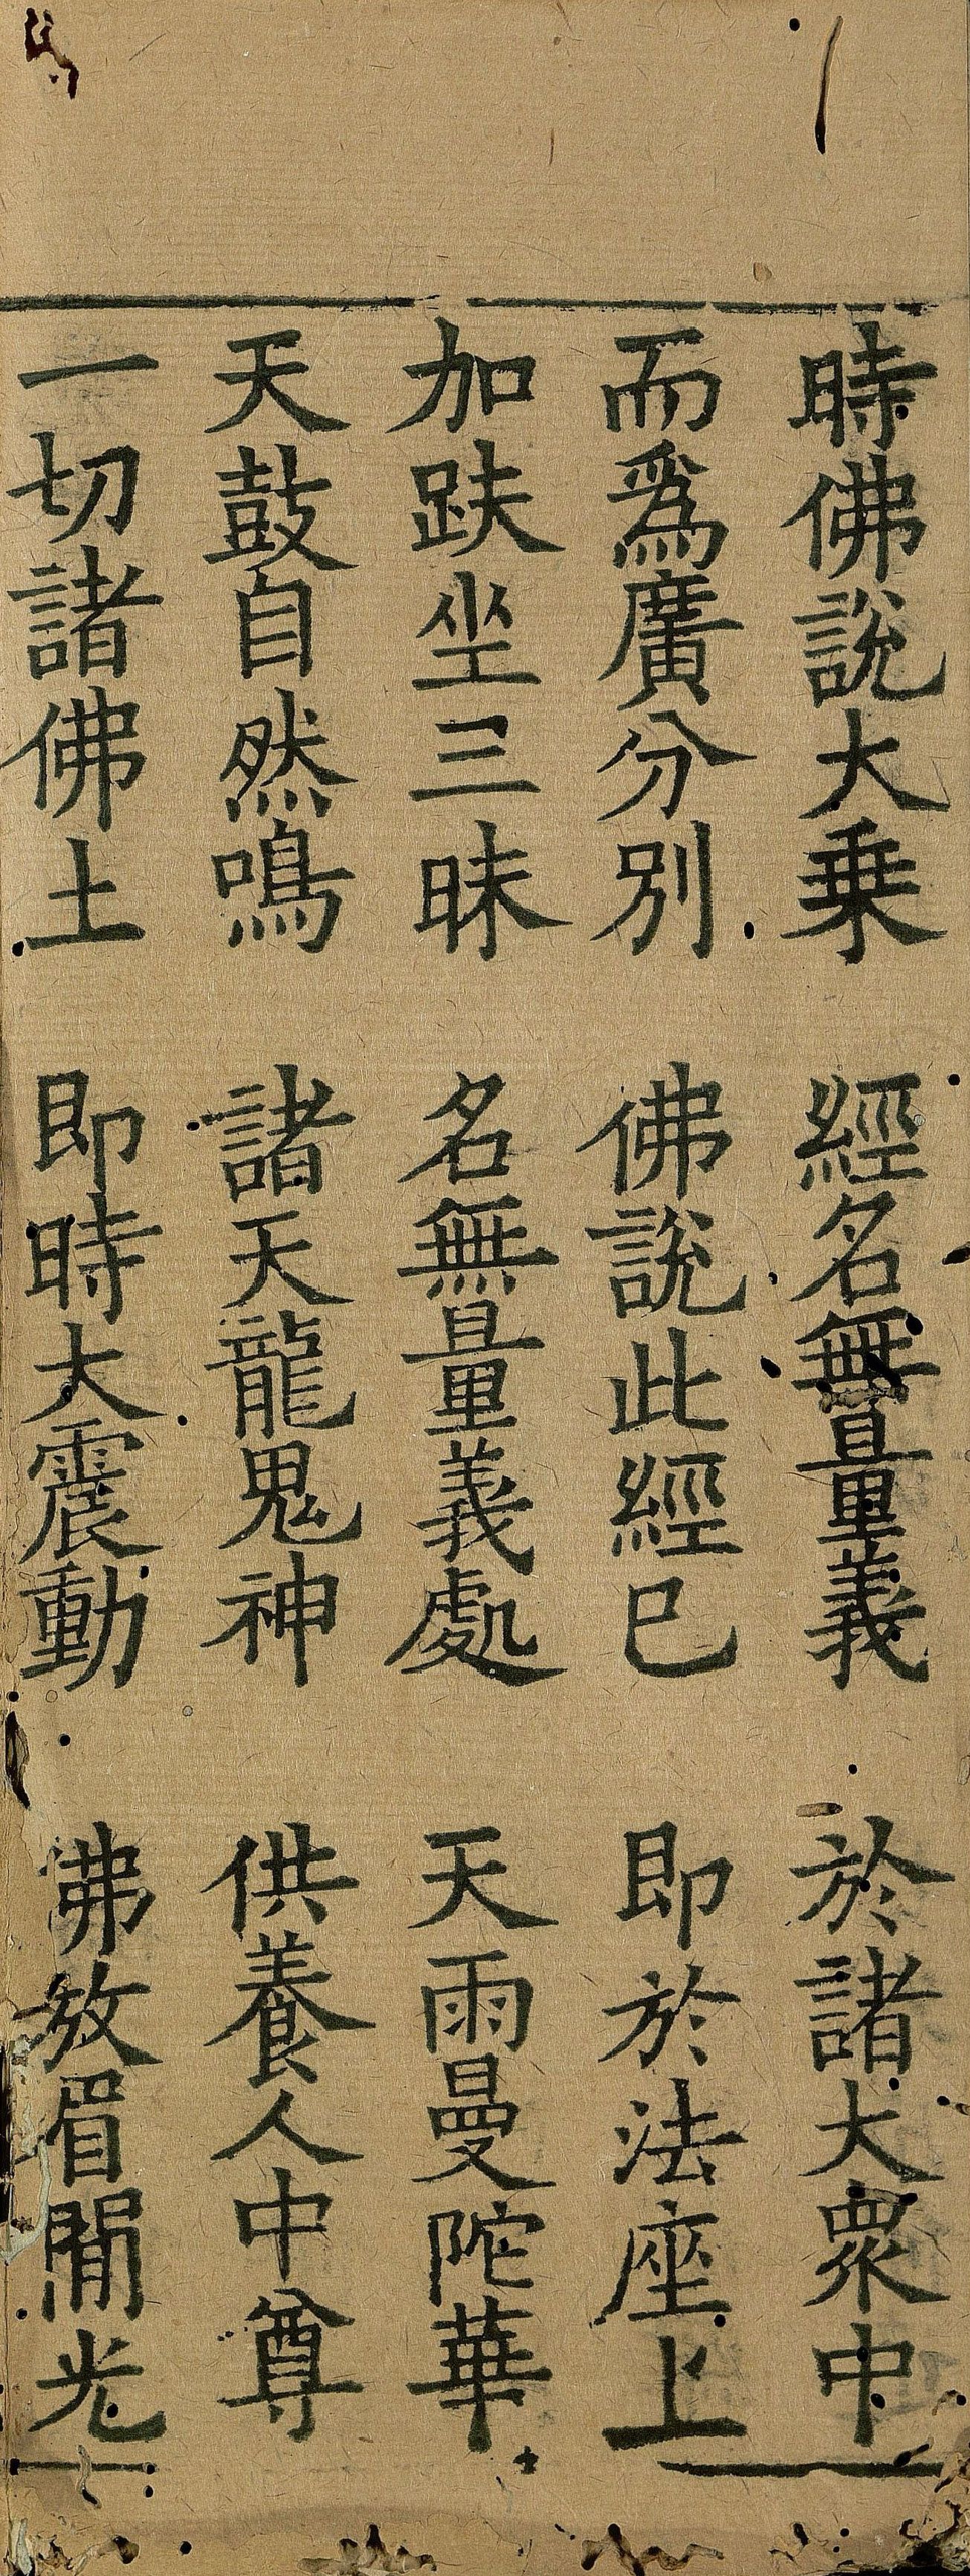 時佛說大乗 經名無量義 於諸大衆中
而爲廣分別 佛說此經已 即於法座上
加趺坐三昧 名無量義處 天雨曼陀華
天鼓自然鳴 諸天龍鬼神 供養人中尊
一切諸佛土 即時大震動 佛放眉間光